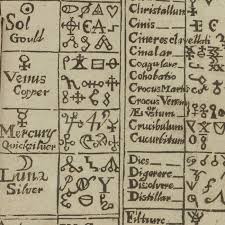 Sol
Gould
Venus
Copper
Mercury
Quicksilver
Luna
Silver
Christallum
Cinis
Cineres clavellati
Cinabar
Coagulare
Cohobatio
Crocus Martis
Crocus Veneris
Crucibulum
Cucurbitum
Dies
Digerere
Dissolvere
Distillar
Filtrare